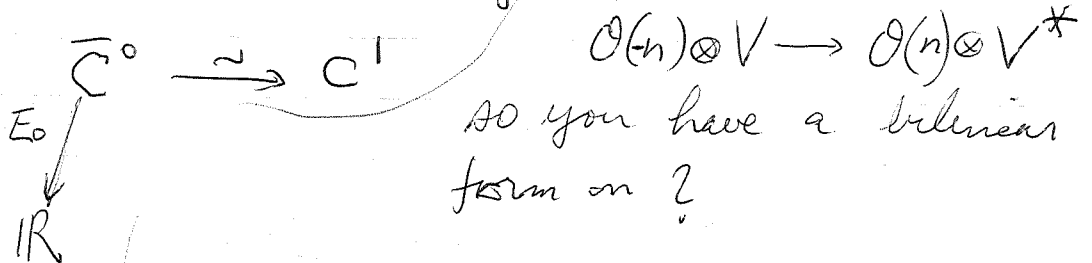 C̄⁰ ⥲ C¹
E₀
IR
O(-n)⊗V → O(n)⊗V*
so you have a bilinear
form on ?